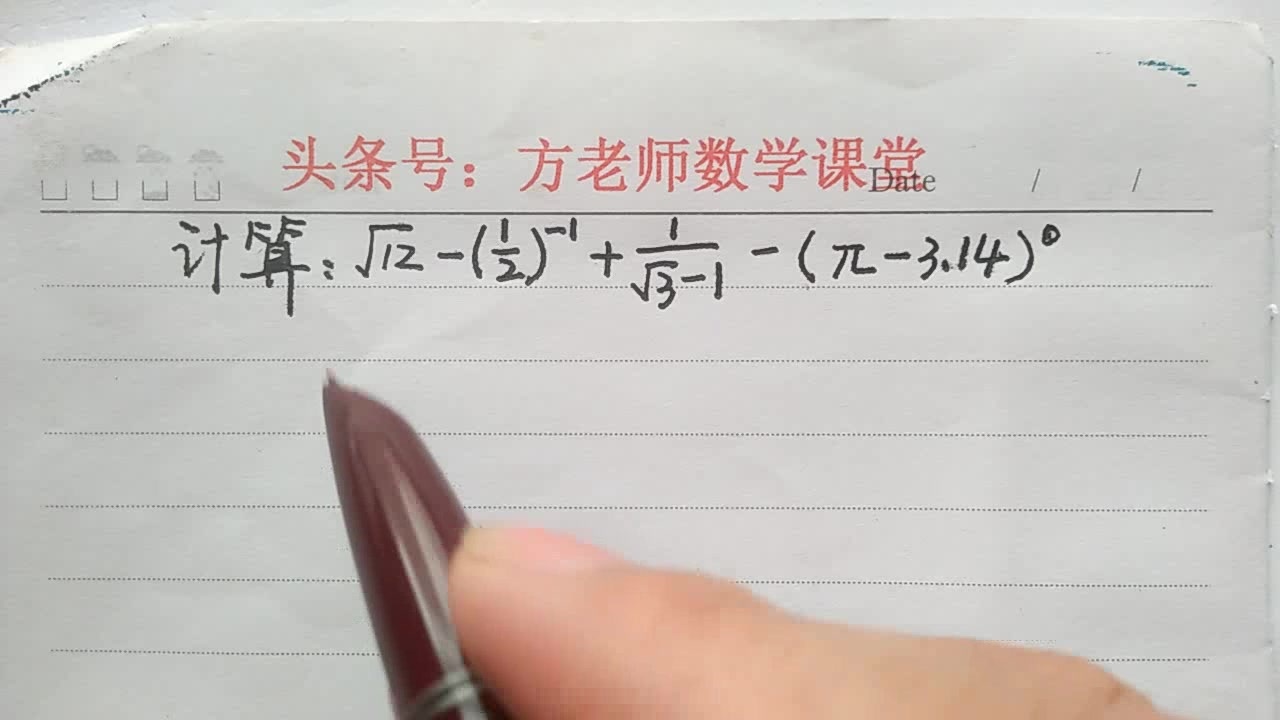 头条号：方老师数学课堂
Date / /
计算：√12 - (1/2)^-1 + 1/(√3-1) - (π-3.14)^0